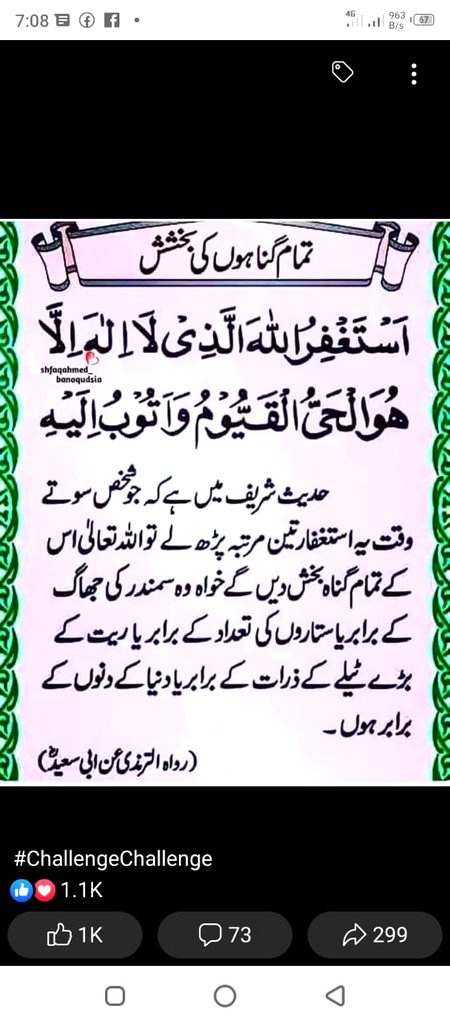 7:08
4G 963 B/s 67
تمام گناہوں کی بخشش
اَسْتَغْفِرُ اللهَ الَّذِیْ لَا اِلٰهَ اِلَّا
shfaqahmed_
banoqudsia
هُوَ الْحَیُّ الْقَیُّوْمُ وَ اَتُوْبُ اِلَیْهِ
حدیث شریف میں ہے کہ جو شخص سوتے
وقت یہ استغفار تین مرتبہ پڑھ لے تو اللہ تعالیٰ اس
کے تمام گناہ بخش دیں گے خواہ وہ سمندر کی جھاگ
کے برابر یا ستاروں کی تعداد کے برابر یا ریت کے
بڑے ٹیلے کے ذرات کے برابر یا دنیا کے دنوں کے
برابر ہوں ۔
(رواہ الترمذی عن ابی سعیدؓ)
#ChallengeChallenge
1.1K
1K 73 299